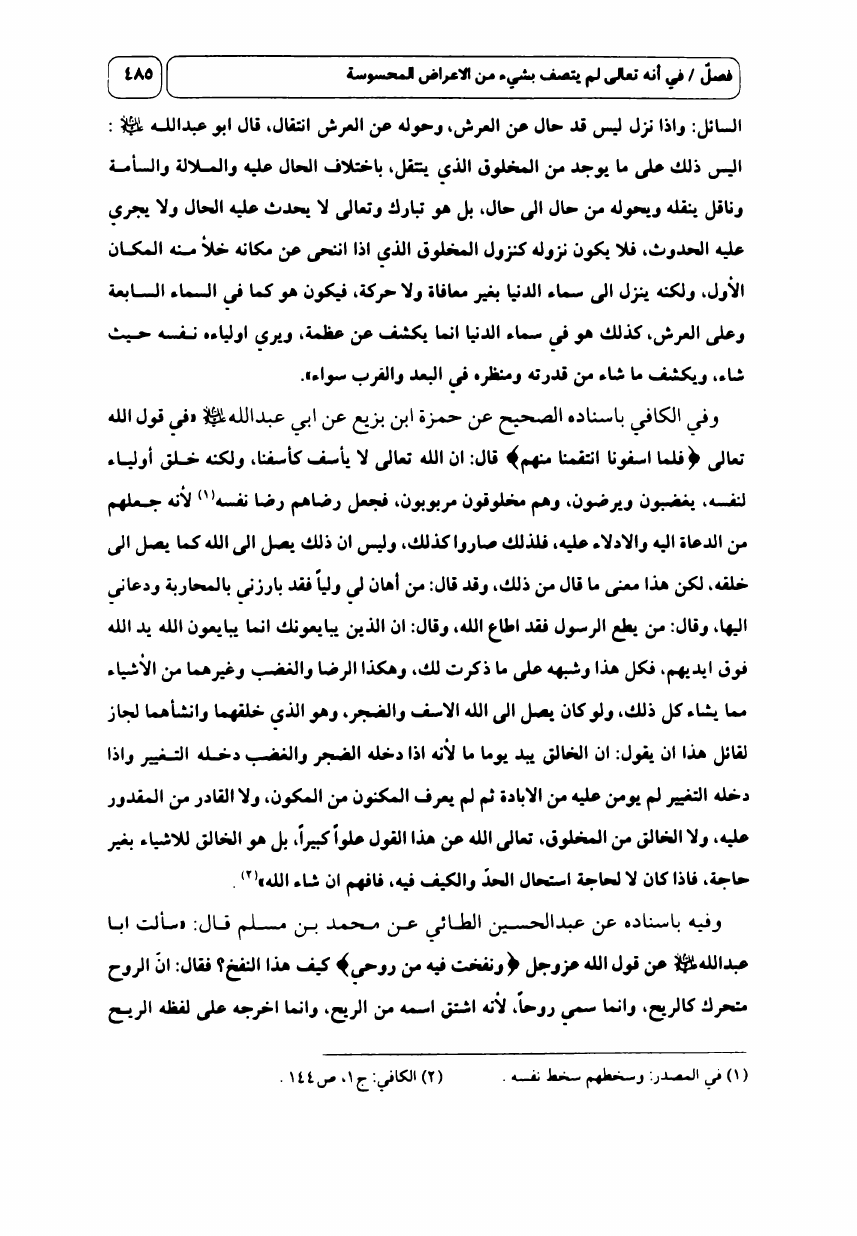 فصلٌ / في أنه تعالى لم يتصف بشيء من الاعراض المحسوسة ٤٨٥
السائل: واذا نزل ليس قد حال عن العرش، وحوله عن العرش انتقال، قال ابو عبدالله ﵇ :
اليس ذلك على ما يوجد من المخلوق الذي ينتقل، باختلاف الحال عليه والملالة والسأمة
وناقل ينقله ويحوله من حال الى حال، بل هو تبارك وتعالى لا يحدث عليه الحال ولا يجري
عليه الحدوث، فلا يكون نزوله كنزول المخلوق الذي اذا انتحى عن مكانه خلأ منه المكان
الأول، ولكنه ينزل الى سماء الدنيا بغير معافاة ولا حركة، فيكون هو كما في السماء السابعة
وعلى العرش، كذلك هو في سماء الدنيا انما يكشف عن عظمة، ويري اولياءه نفسه حيث
شاء، ويكشف ما شاء من قدرته ومنظره في البعد والقرب سواء».
وفي الكافي باسناده الصحيح عن حمزة ابن بزيع عن ابي عبدالله﵇ «في قول الله
تعالى ﴿فلما اسفونا انتقمنا منهم﴾ قال: ان الله تعالى لا يأسف كأسفنا، ولكنه خلق أولياء
لنفسه، يغضبون ويرضون، وهم مخلوقون مربوبون، فجعل رضاهم رضا نفسه(١) لأنه جعلهم
من الدعاة اليه والادلاء عليه، فلذلك صاروا كذلك، وليس ان ذلك يصل الى الله كما يصل الى
خلقه، لكن هذا معنى ما قال من ذلك، وقد قال: من أهان لي ولياً فقد بارزني بالمحاربة ودعاني
اليها، وقال: من يطع الرسول فقد اطاع الله، وقال: ان الذين يبايعونك انما يبايعون الله يد الله
فوق ايديهم، فكل هذا وشبهه على ما ذكرت لك، وهكذا الرضا والغضب وغيرهما من الأشياء
مما يشاء كل ذلك، ولو كان يصل الى الله الاسف والضجر، وهو الذي خلقهما وانشأهما لجاز
لقائل هذا ان يقول: ان الخالق يبد يوما ما لأنه اذا دخله الضجر والغضب دخله التغيير واذا
دخله التغيير لم يومن عليه من الابادة ثم لم يعرف المكنون من المكون، ولا القادر من المقدور
عليه، ولا الخالق من المخلوق، تعالى الله عن هذا القول علواً كبيراً، بل هو الخالق للاشياء بغير
حاجة، فاذا كان لا لحاجة استحال الحدّ والكيف فيه، فافهم ان شاء الله»(٢) .
وفيه باسناده عن عبدالحسين الطائي عن محمد بن مسلم قال: «سألت ابا
عبدالله﵇ عن قول الله عزوجل ﴿ونفخت فيه من روحي﴾ كيف هذا النفخ؟ فقال: انّ الروح
متحرك كالريح، وانما سمي روحاً، لأنه اشتق اسمه من الريح، وانما اخرجه على لفظه الريح
(١) في المصدر: وسخطهم سخط نفسه . (٢) الكافي: ج١، ص١٤٤ .